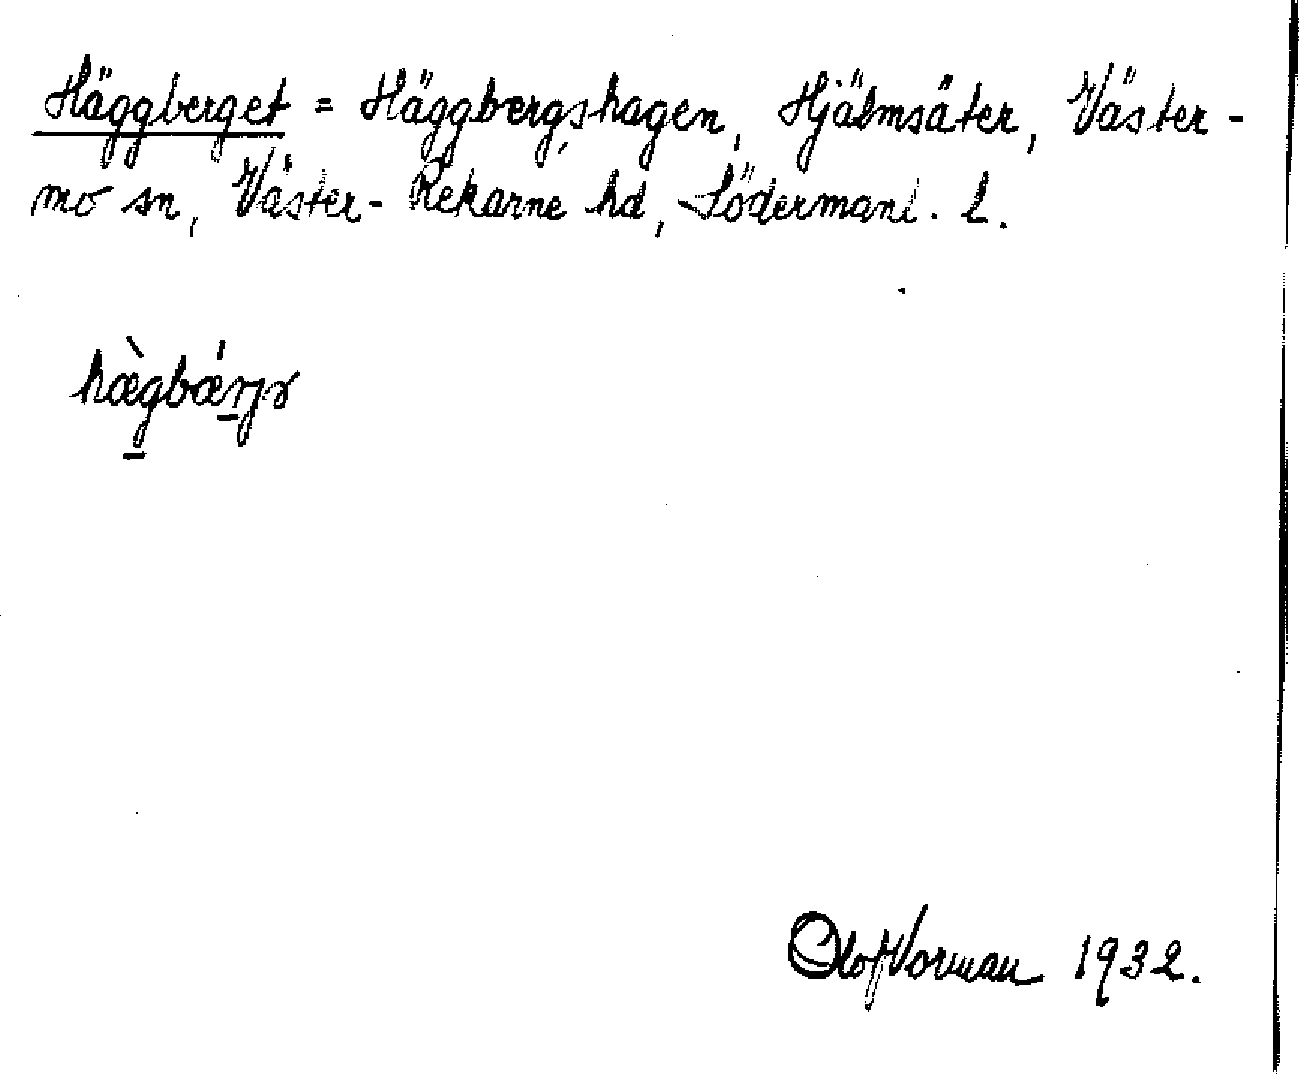 Häggberget = Häggbergshagen, Hjälmsäter, Väster-
mo sn, Väster-Rekarne hd, Södermanl. l.
hæ̀gbǽrjɤ
Olof Norman 1932.